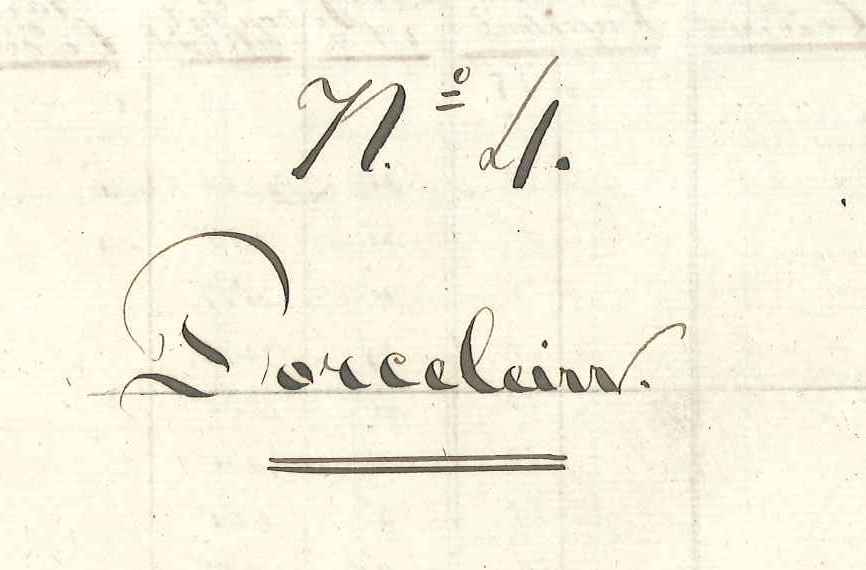 Nº 4.
Porcelein.